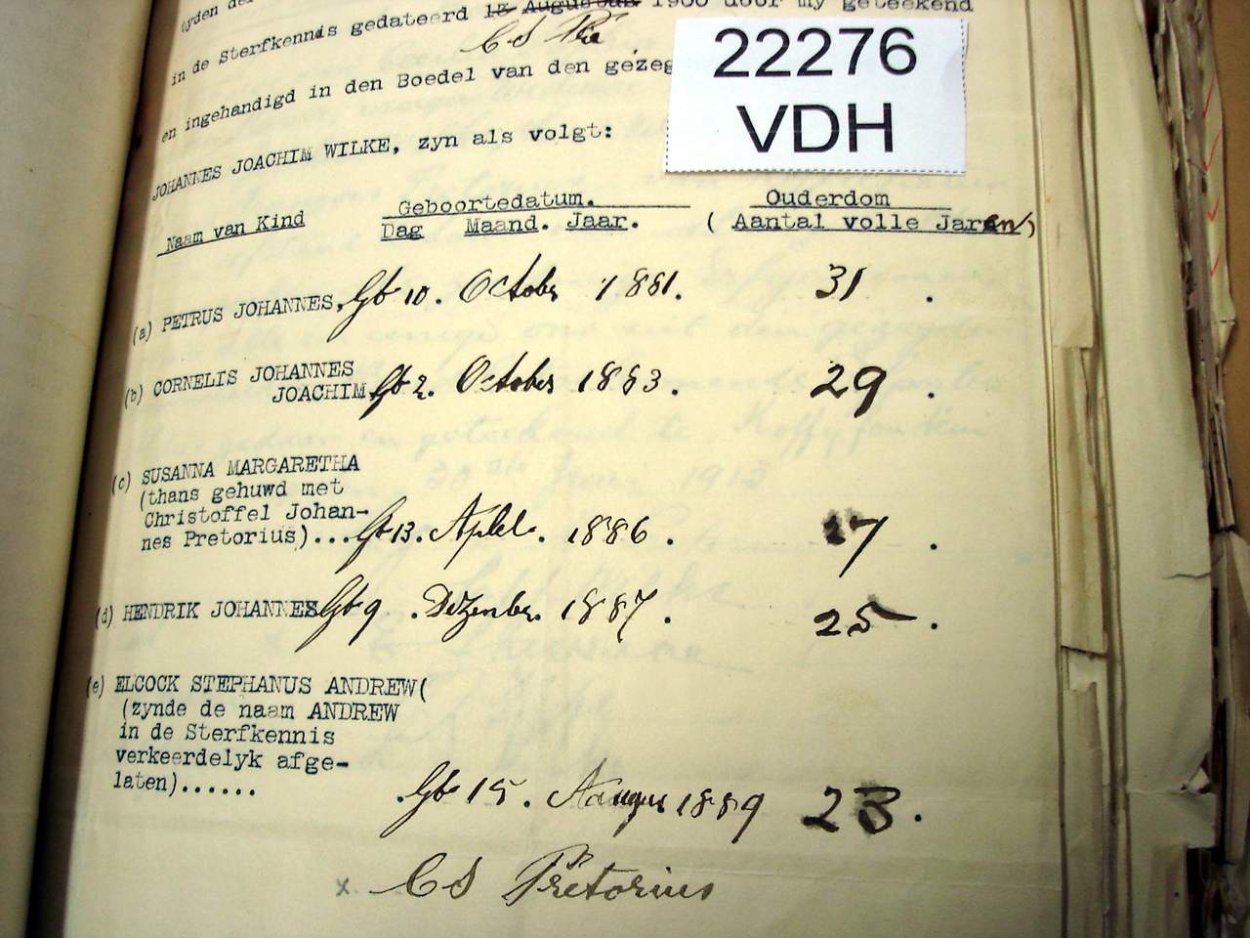 tyden der
in de Sterfkennis gedateerd 15 Augustus 1900 door my geteekend
C S Pre
en ingehandigd in den Boedel van den gezeg
22276
VDH
JOHANNES JOACHIM WILKE, zyn als volgt:
Naam van Kind Geboortedatum. Ouderdom
Dag Maand. Jaar. (Aantal volle Jaren)
(a) PETRUS JOHANNES, Gb 10. October 1881. 31.
(b) CORNELIS JOHANNES
JOACHIM Gb 2. October 1883. 29.
(c) SUSANNA MARGARETHA
(thans gehuwd met
Christoffel Johan-
nes Pretorius)... Gb 13. April. 1886. 27.
(d) HENDRIK JOHANNES Gb 9. Dezember 1887. 25.
(e) ELCOCK STEPHANUS ANDREW(
(zynde de naam ANDREW
in de Sterfkennis
verkeerdelyk afge-
laten)......
Gb 15. 1889 23.
x C S Pretorius